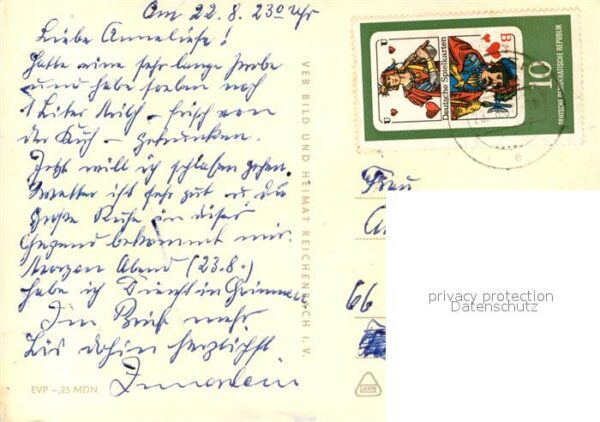 Am 22.8. 23⁰⁰ Uhr
Liebe Anneliese!
Hatte eine sehr lange Probe
und habe soeben noch
1 Liter Milch - frisch von
der Kuh - getrunken.
Jetzt will ich schlafen gehen.
Wetter ist sehr gut u. die
große Ruhe in dieser
Gegend bekommt mir.
Morgen Abend (23.8.)
habe ich Dienst in Grimmen
Im Brief mehr.
Bis dahin herzlichst
VEB BILD UND HEIMAT REICHENBACH I. V.
EVP –,25 MDN
U
U
Deutsche Spielkarten
10
DEUTSCHE DEMOKRATISCHE REPUBLIK
e
Frau
A
66
privacy protection
Datenschutz